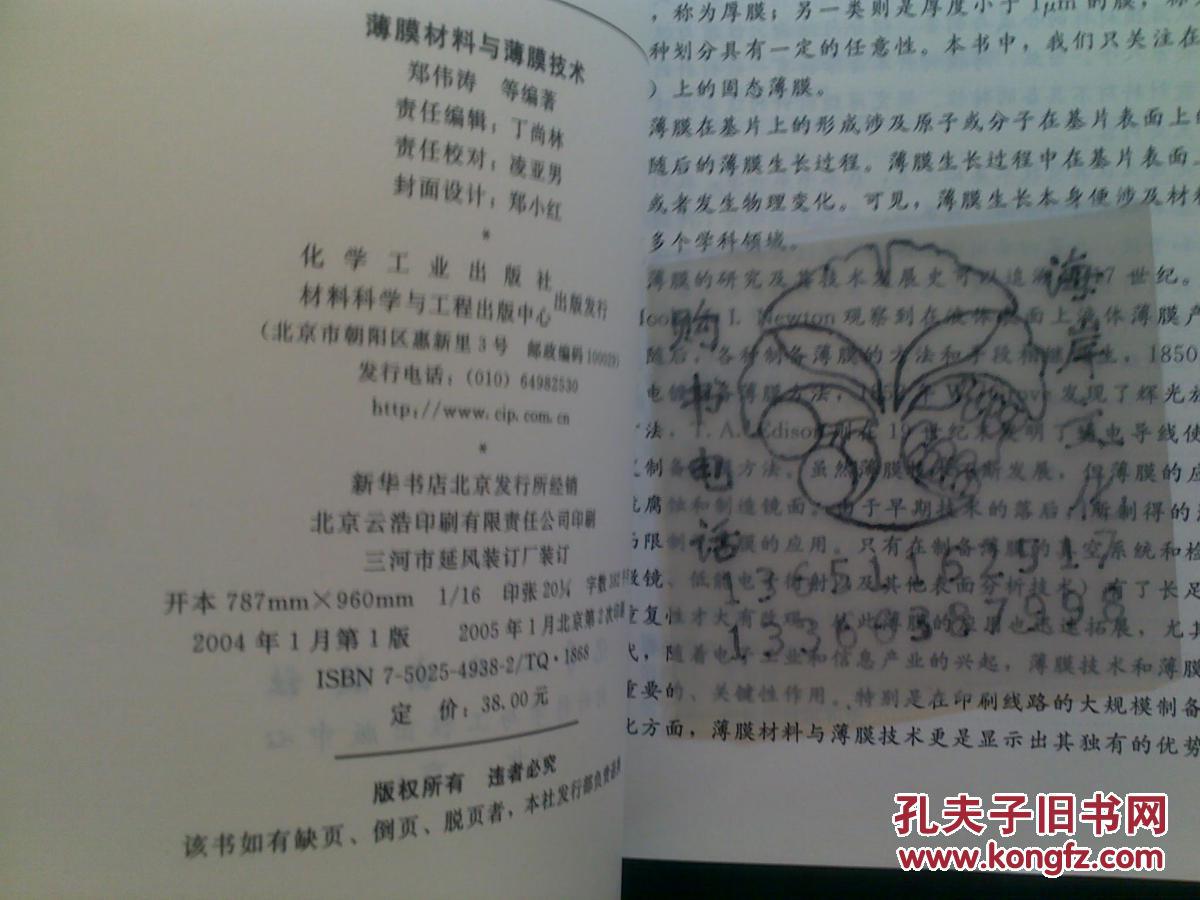 薄膜材料与薄膜技术
郑伟涛 等编著
责任编辑：丁尚林
责任校对：凌亚男
封面设计：郑小红
*
化学工业出版社
材料科学与工程出版中心 出版发行
(北京市朝阳区惠新里3号 邮政编码100029)
发行电话：(010) 64982530
http://www.cip.com.cn
*
新华书店北京发行所经销
北京云浩印刷有限责任公司印刷
三河市延风装订厂装订
开本 787mm×960mm 1/16 印张 20¼ 字数
2004年1月第1版 2005年1月北京第2次印刷
ISBN 7-5025-4938-2/TQ·1868
定 价：38.00元
版权所有 违者必究
该书如有缺页、倒页、脱页者，本社发行部负责
，称为厚膜；另一类则是厚度小于1μm的膜，称
种划分具有一定的任意性。本书中，我们只关注在
）上的固态薄膜。
薄膜在基片上的形成涉及原子或分子在基片表面上的
随后的薄膜生长过程。薄膜生长过程中在基片表面
或者发生物理变化。可见，薄膜生长本身便涉及材料
多个学科领域。
薄膜的研究及其技术发展史可以追溯 17世纪。
I. Newton观察到在液体表面上液体薄膜产
随后，各种制备薄膜的方法和手段相继 生，1850
电镀 备薄膜方法，185 年 发现了辉光放
法，T. A. Edison则在19世纪末发明了 电导线使
制备 方法。虽然薄膜 断发展，但薄膜的应
腐蚀和制造镜面。由于早期技术的落后，所制得的
限制 膜的应用。只有在制备薄膜的真空系统和检
镜、低能电子衍射以及其他表面分析技术）有了长足
重复性才大有改观，从此薄膜的应用也迅速拓展，尤其
代，随着电子工业和信息产业的兴起，薄膜技术和薄膜
重要的、关键性作用。特别是在印刷线路的大规模制备
方面，薄膜材料与薄膜技术更是显示出其独有的优势
海岸
购书电话
13651162517
13366387998
孔夫子旧书网
www.kongfz.com